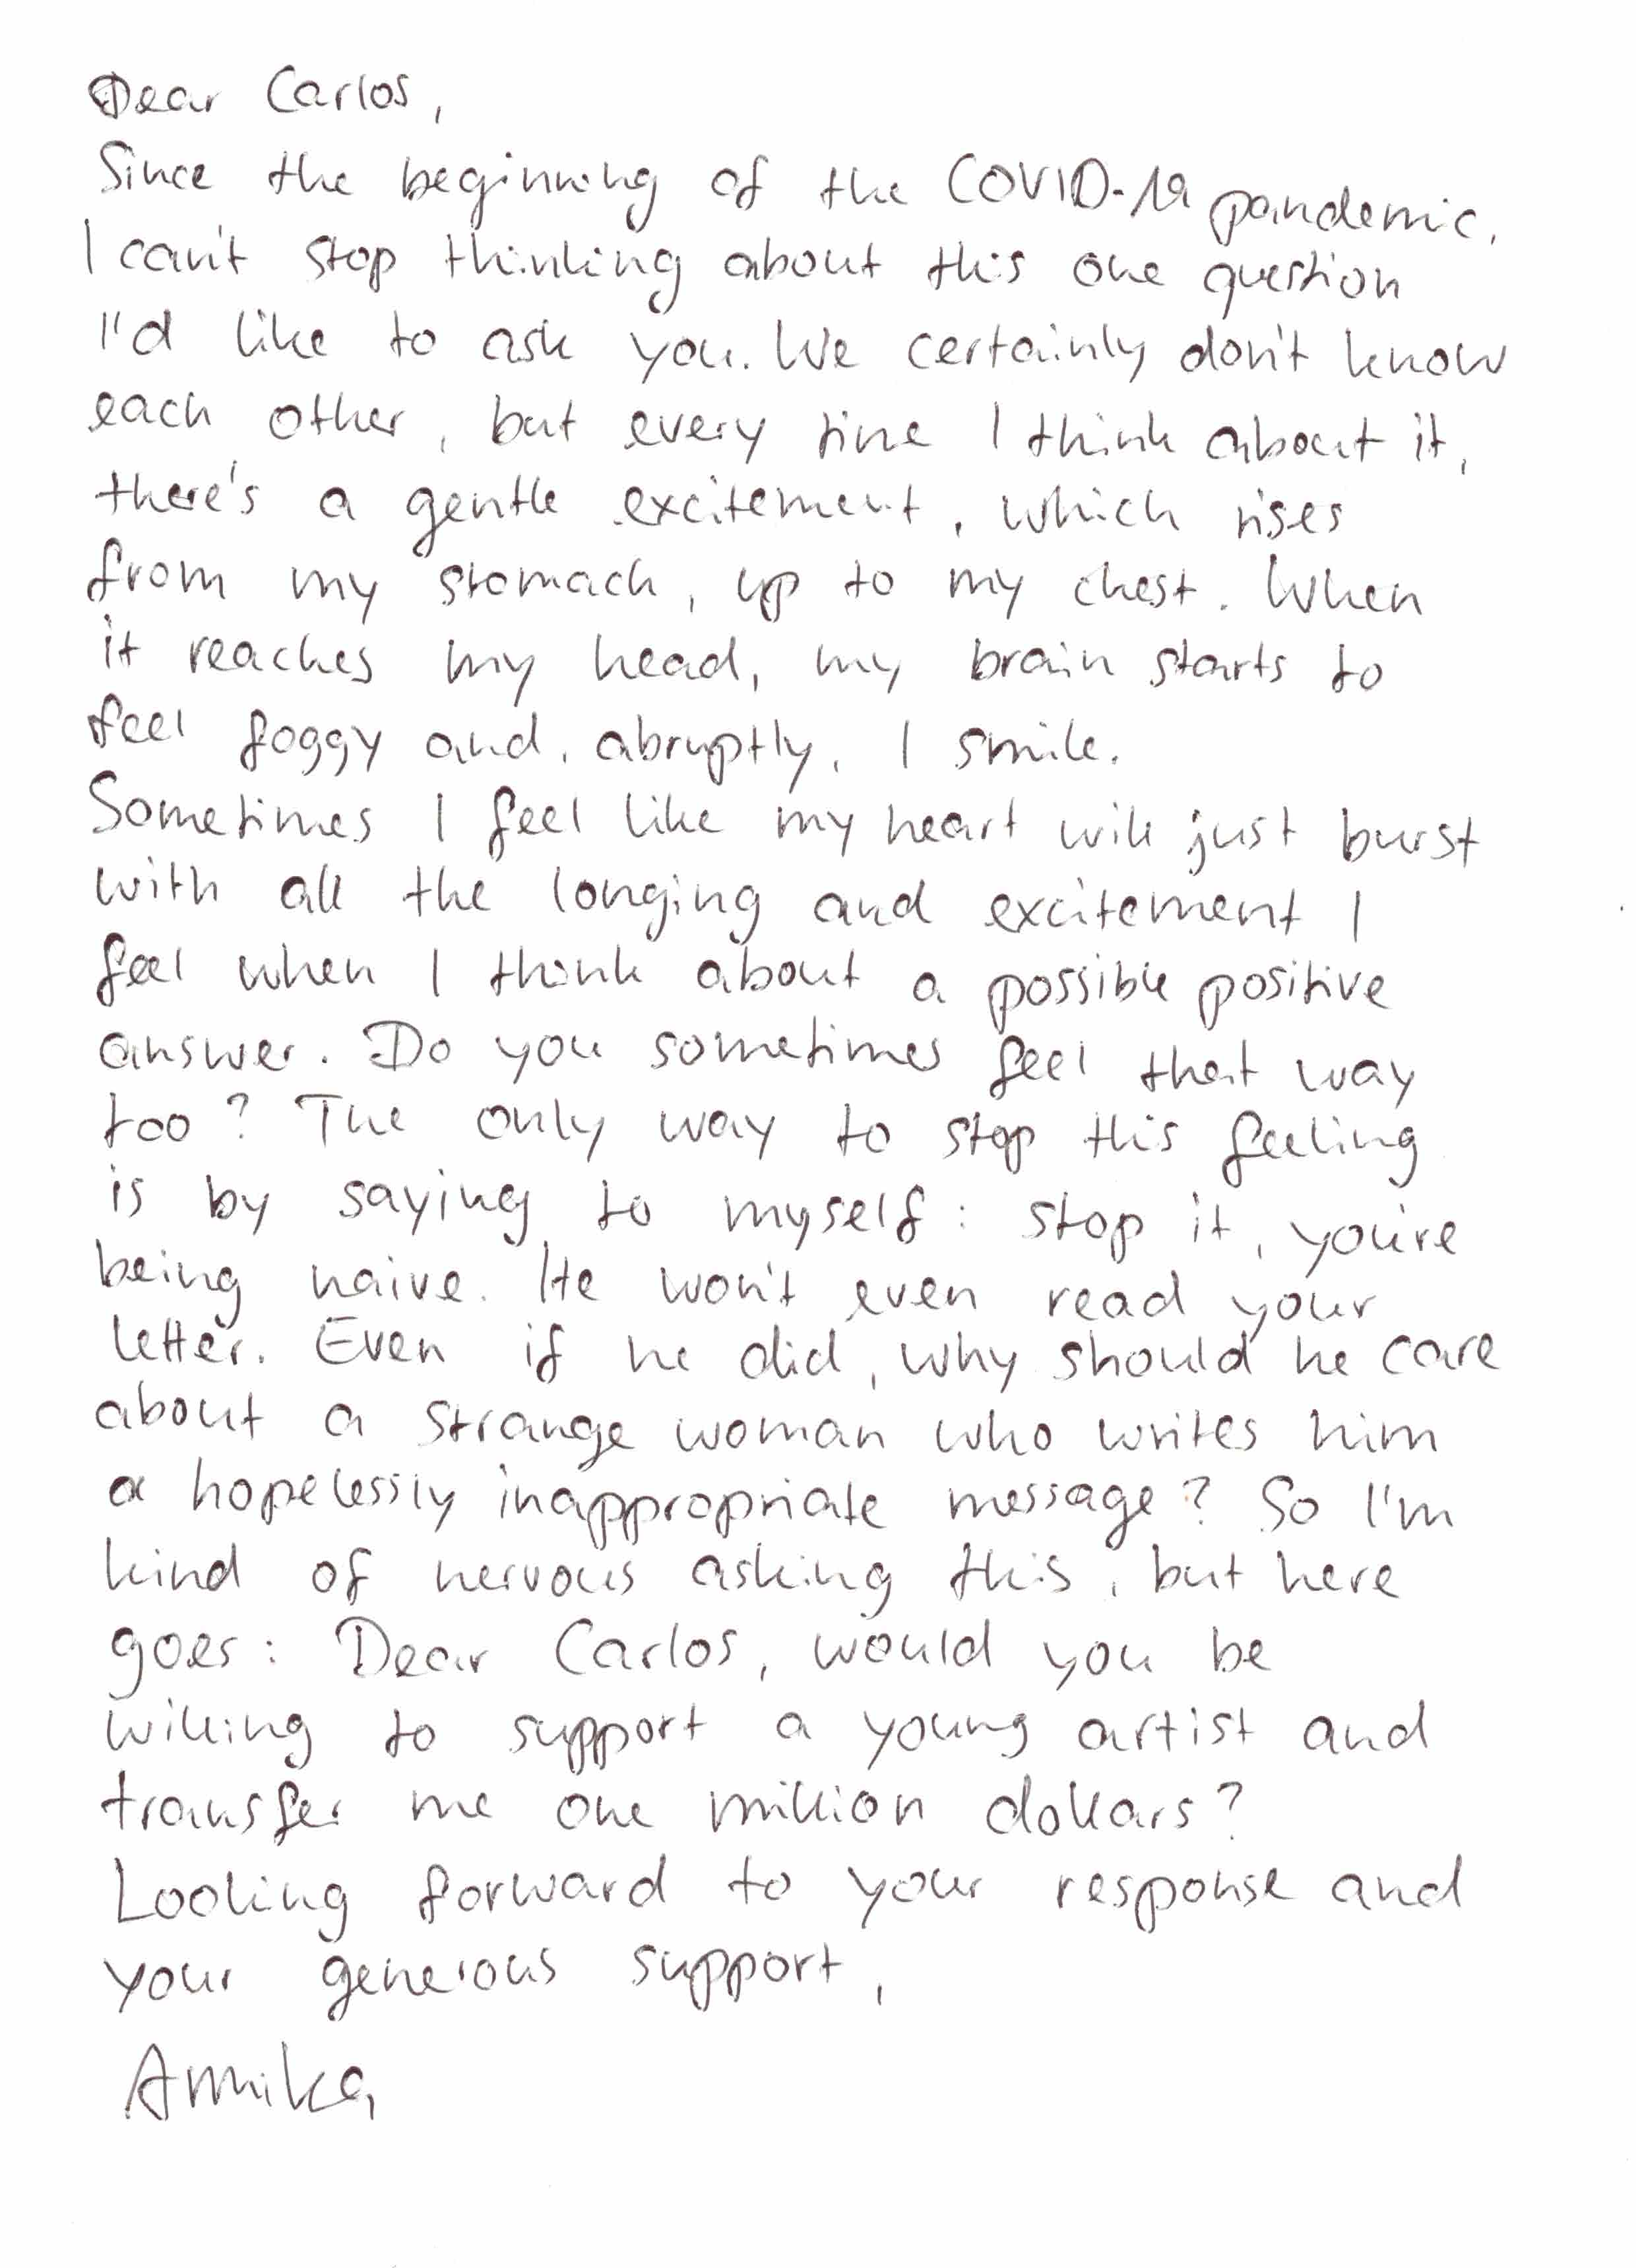 Dear Carlos,
Since the beginning of the COVID-19 pandemic,
I can't stop thinking about this one question
I'd like to ask you. We certainly don't know
each other, but every time I think about it,
there's a gentle excitement, which rises
from my stomach, up to my chest. When
it reaches my head, my brain starts to
feel foggy and, abruptly, I smile.
Sometimes I feel like my heart will just burst
with all the longing and excitement I
feel when I think about a possible positive
answer. Do you sometimes feel that way
too? The only way to stop this feeling
is by saying to myself: stop it, you're
being naive. He won't even read your
letter. Even if he did, why should he care
about a strange woman who writes him
a hopelessly inappropriate message? So I'm
kind of nervous asking this, but here
goes: Dear Carlos, would you be
willing to support a young artist and
transfer me one million dollars?
Looking forward to your response and
your generous support,
Annika